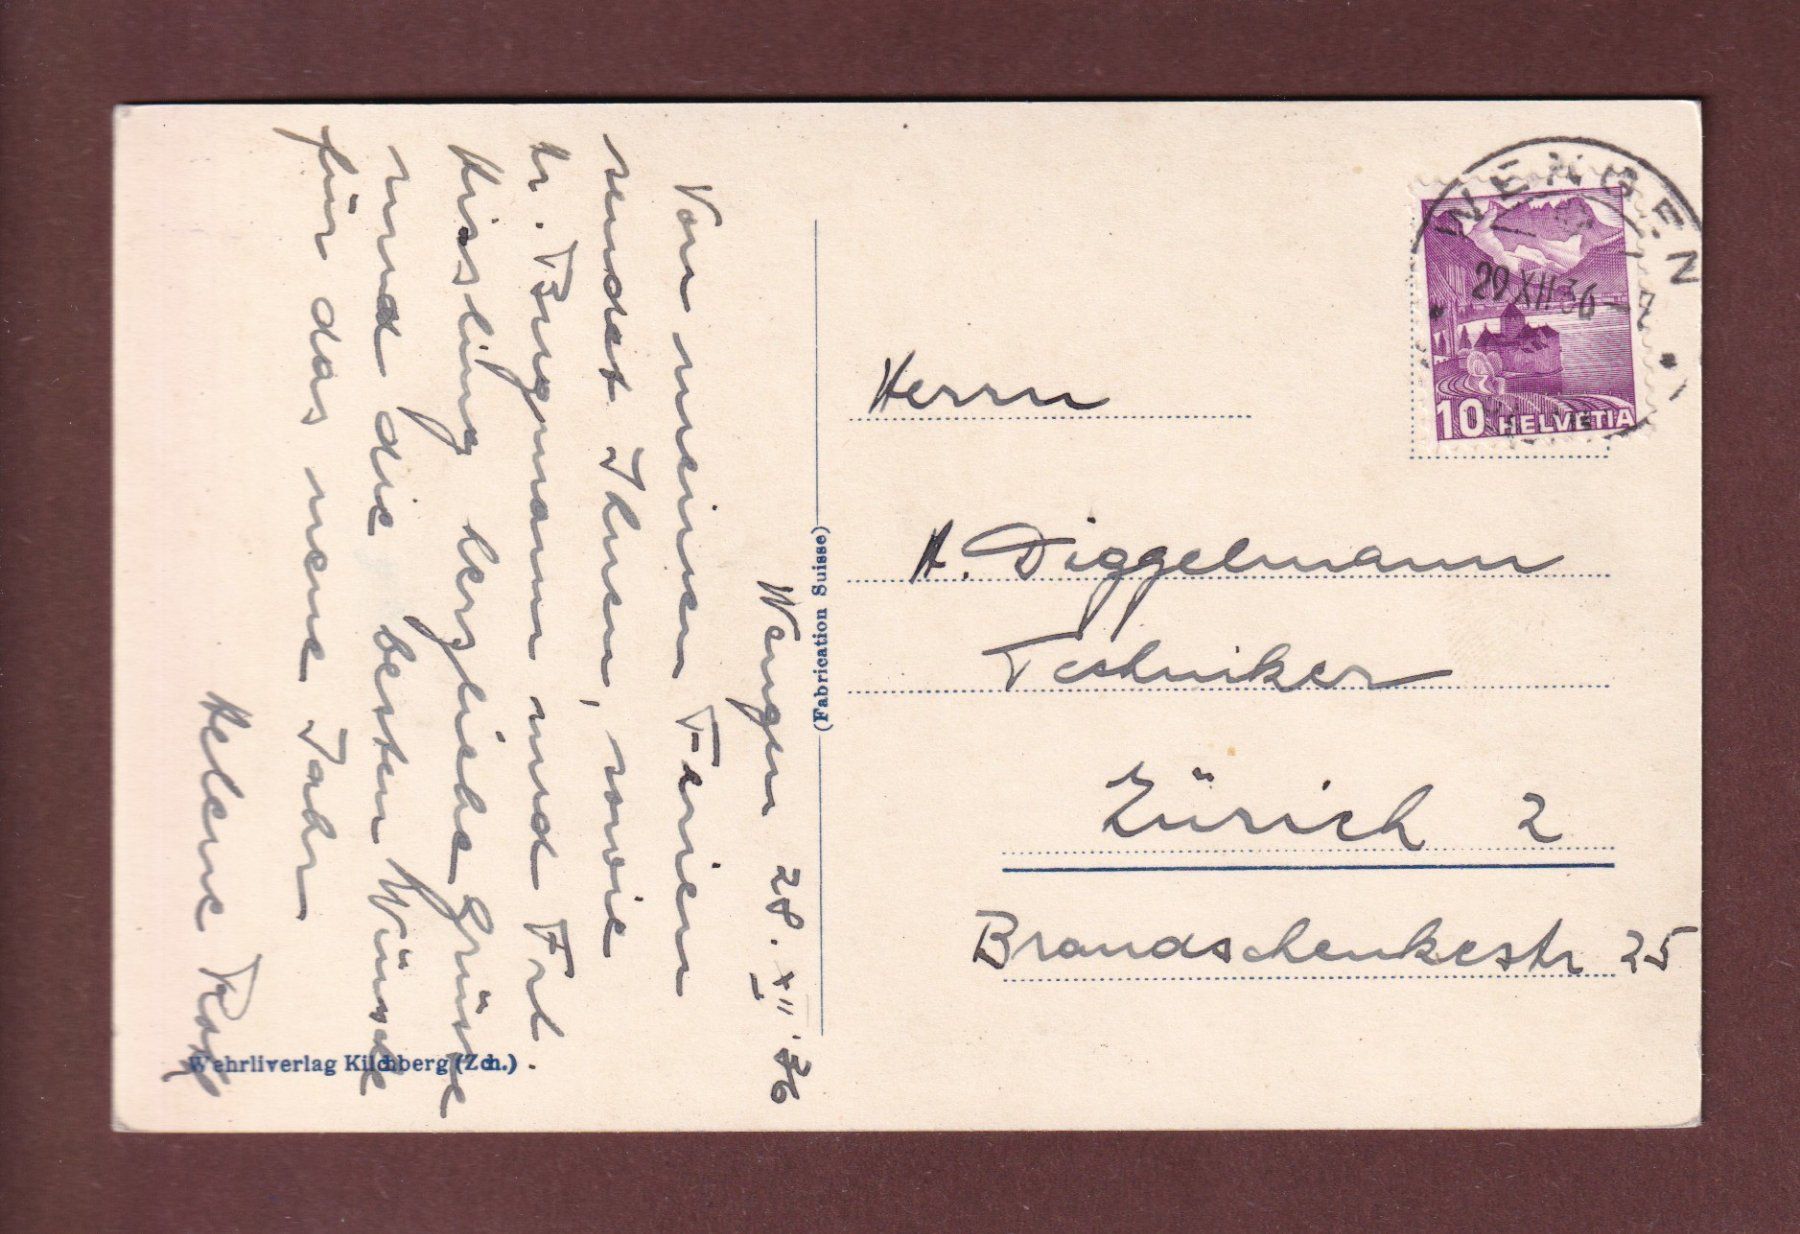 Wengen 28. XII '36
Von meinen Ferien
sendet Ihnen, sowie
Hr. Brugmann und Frl.
Kissling herzliche Grüsse
und die besten Wünsche
für das neue Jahr
Helene
Wehrliverlag Kilchberg (Zch.)
(Fabrication Suisse)
WENGEN
29.XII.36
10 HELVETIA
Herrn
A. Diggelmann
Techniker
Zürich 2
Brandschenkestr 25